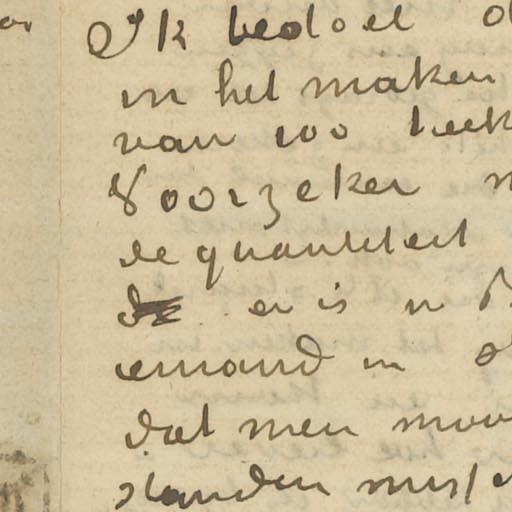 Ik bedoel
in het maken
van 100
Voorzeker
de quantiteit
er is in
iemand in
dat men
standen